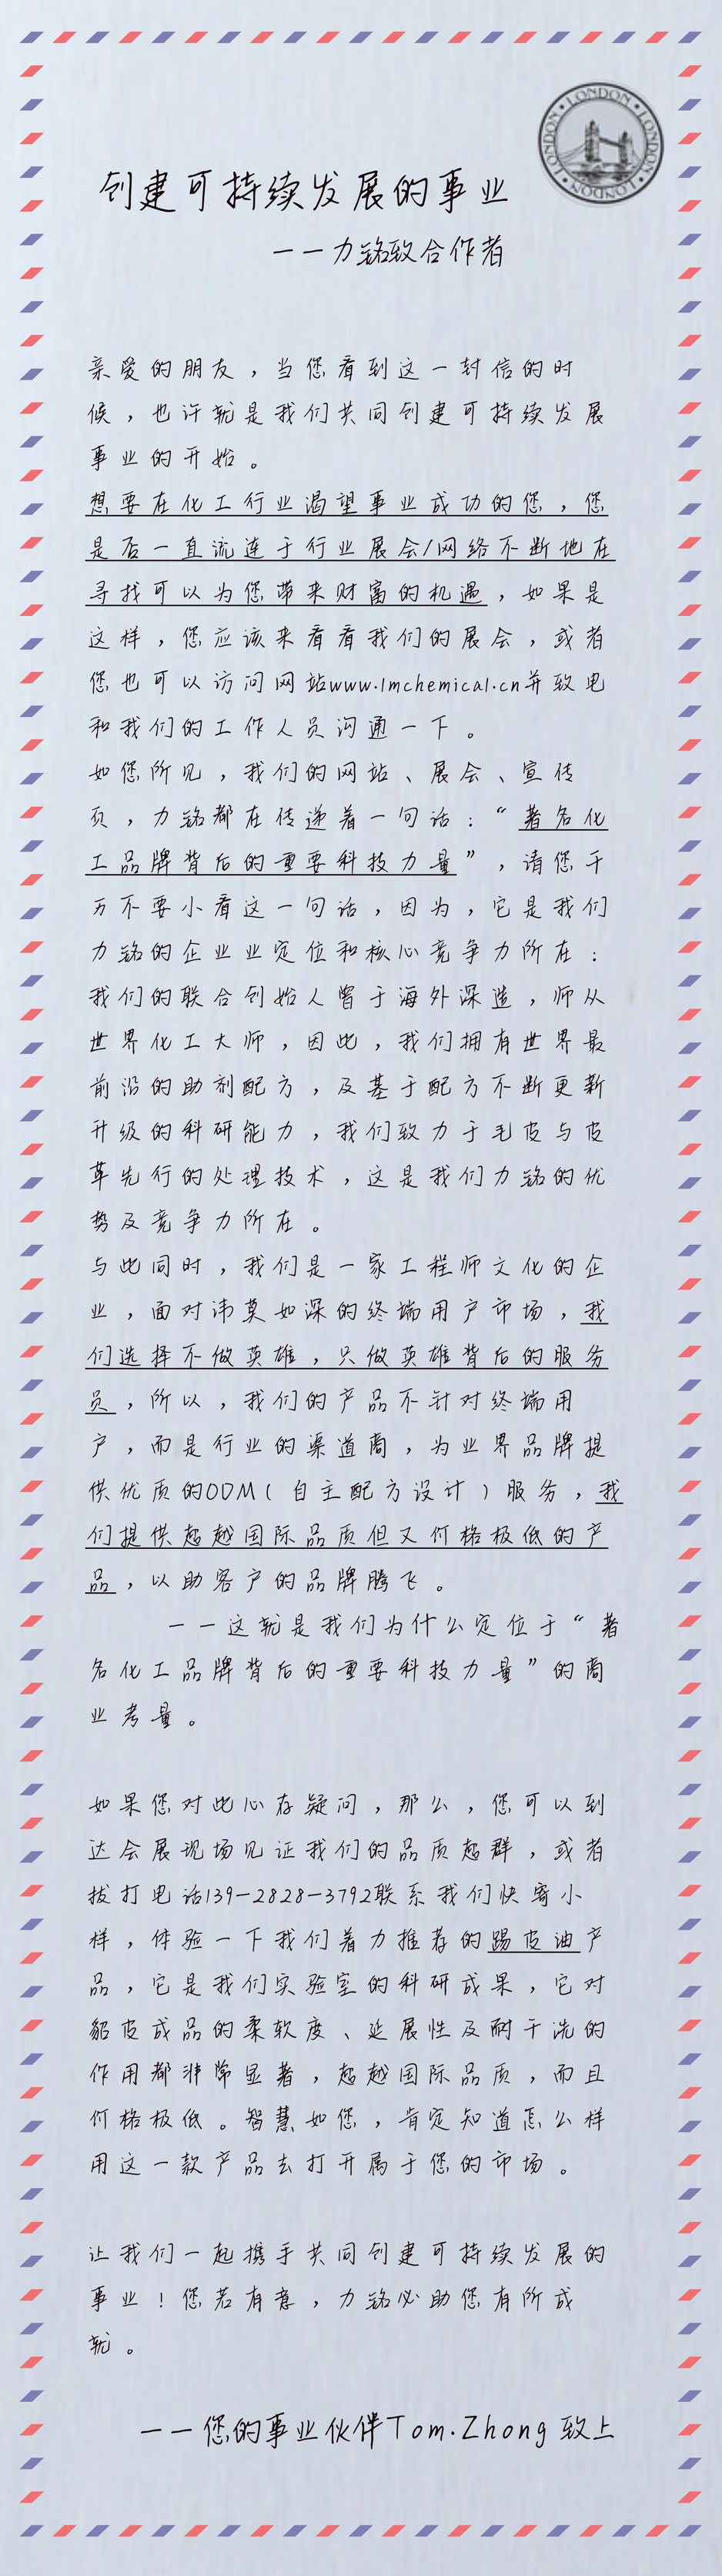 LONDON · LONDON · LONDON · LONDON
创建可持续发展的事业
——力铭致合作者
亲爱的朋友，当您看到这一封信的时
候，也许就是我们共同创建可持续发展
事业的开始。
想要在化工行业渴望事业成功的您，您
是否一直流连于行业展会/网络不断地在
寻找可以为您带来财富的机遇，如果是
这样，您应该来看看我们的展会，或者
您也可以访问网站www.lmchemical.cn并致电
和我们的工作人员沟通一下。
如您所见，我们的网站、展会、宣传
页，力铭都在传递着一句话：“著名化
工品牌背后的重要科技力量”，请您千
万不要小看这一句话，因为，它是我们
力铭的企业业定位和核心竞争力所在：
我们的联合创始人曾于海外深造，师从
世界化工大师，因此，我们拥有世界最
前沿的助剂配方，及基于配方不断更新
升级的科研能力，我们致力于毛皮与皮
革先行的处理技术，这是我们力铭的优
势及竞争力所在。
与此同时，我们是一家工程师文化的企
业，面对讳莫如深的终端用户市场，我
们选择不做英雄，只做英雄背后的服务
员，所以，我们的产品不针对终端用
户，而是行业的渠道商，为业界品牌提
供优质的ODM(自主配方设计)服务，我
们提供超越国际品质但又价格极低的产
品，以助客户的品牌腾飞。
——这就是我们为什么定位于“著
名化工品牌背后的重要科技力量”的商
业考量。
如果您对此心存疑问，那么，您可以到
达会展现场见证我们的品质超群，或者
拔打电话139-2828-3792联系我们快寄小
样，体验一下我们着力推荐的踢皮油产
品，它是我们实验室的科研成果，它对
貂皮成品的柔软度、延展性及耐干洗的
作用都非常显著，超越国际品质，而且
价格极低。智慧如您，肯定知道怎么样
用这一款产品去打开属于您的市场。
让我们一起携手共同创建可持续发展的
事业！您若有意，力铭必助您有所成
就。
——您的事业伙伴Tom.Zhong 致上